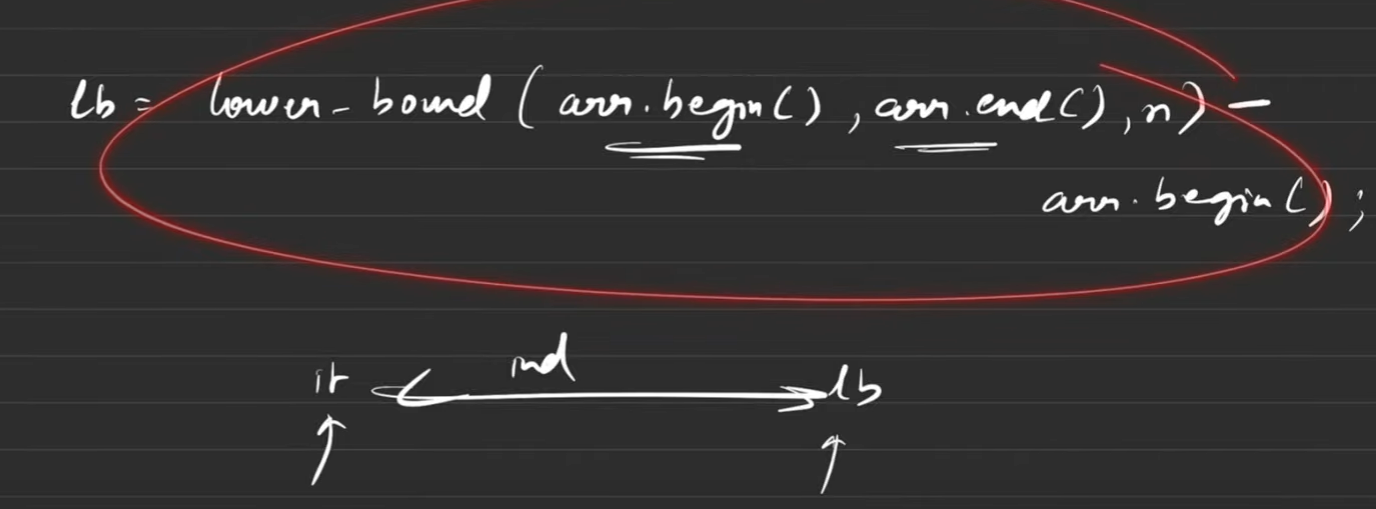 lb = lower_bound (arr.begin(), arr.end(), n) -
arr.begin();
ind
it lb